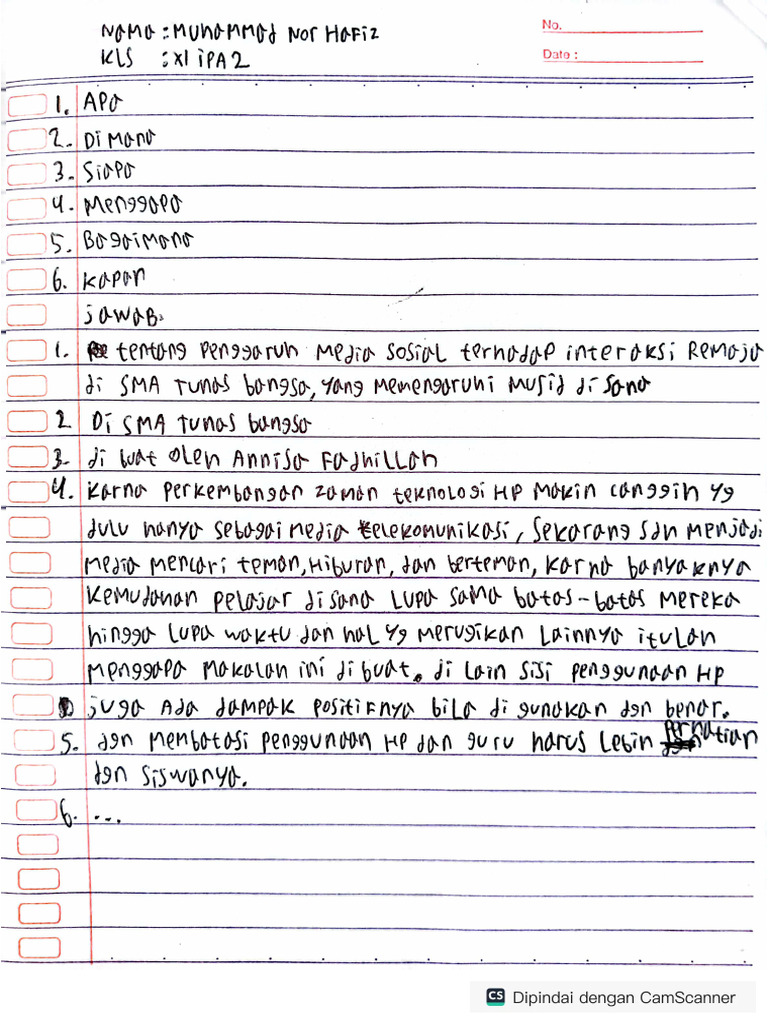 Nama : Muhammad Nor Hafiz
No.
Kls : XI iPA 2
Date :
1. Apa
2. Di Mana
3. Siapa
4. Menggapa
5. Bagaimana
6. Kapan
jawab:
1. tentang Penggaruh Media Sosial terhadap interaksi Remaja
di SMA Tunas bangsa, yang memengaruhi Murid di sana
2. Di SMA Tunas bangsa
3. di buat oleh Annisa Fadhillah
4. Karna Perkembangan Zaman teknologi HP Makin canggih yg
dulu hanya sebagai media telekomunikasi, Sekarang sdh menjadi
media mencari teman, Hiburan, dan berteman, karna banyaknya
kemudahan pelajar disana Lupa sama batas-batas Mereka
hingga Lupa waktu dan hal yg merugikan Lainnya itulah
menggapa Makalah ini di buat. di Lain Sisi penggunaan HP
juga Ada dampak positifnya bila di gunakan dgn benar.
5. dgn membatasi penggunaan HP dan guru harus Lebih perhatian
dgn siswanya.
6. ...
CS Dipindai dengan CamScanner